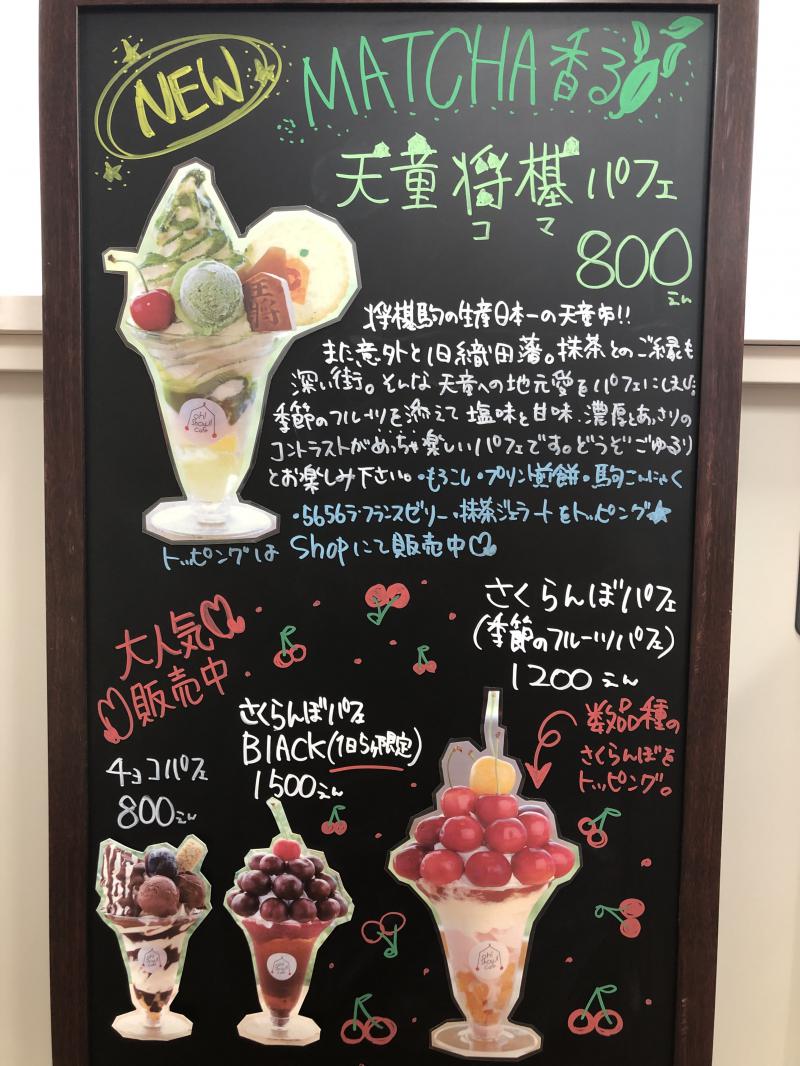 NEW
MATCHA香る
天童将棋パフェ
コマ
800えん
王将
将棋駒の生産日本一の天童市!!
また意外と旧織田藩。抹茶とのご縁も
深い街。そんな天童への地元愛をパフェにしました
季節のフルーツを添えて塩味と甘味、濃厚とあっさりの
コントラストがめっちゃ楽しいパフェです。どうぞごゆるり
とお楽しみ下さい。・もろこし・プリン煎餅・駒こんにゃく
・5656ラ・フランスゼリー・抹茶ジェラートをトッピング★
トッピングはShopにて販売中♡
oh!
show!!
cafe
さくらんぼパフェ
(季節のフルーツパフェ)
1200えん
大人気♡
♡販売中
さくらんぼパフェ
BlACK(1日5ヶ限定)
1500えん
数品種の
さくらんぼを
トッピング。
チョコパフェ
800えん
oh!
show!!
cafe
oh!
show!!
cafe
oh!
show!!
cafe